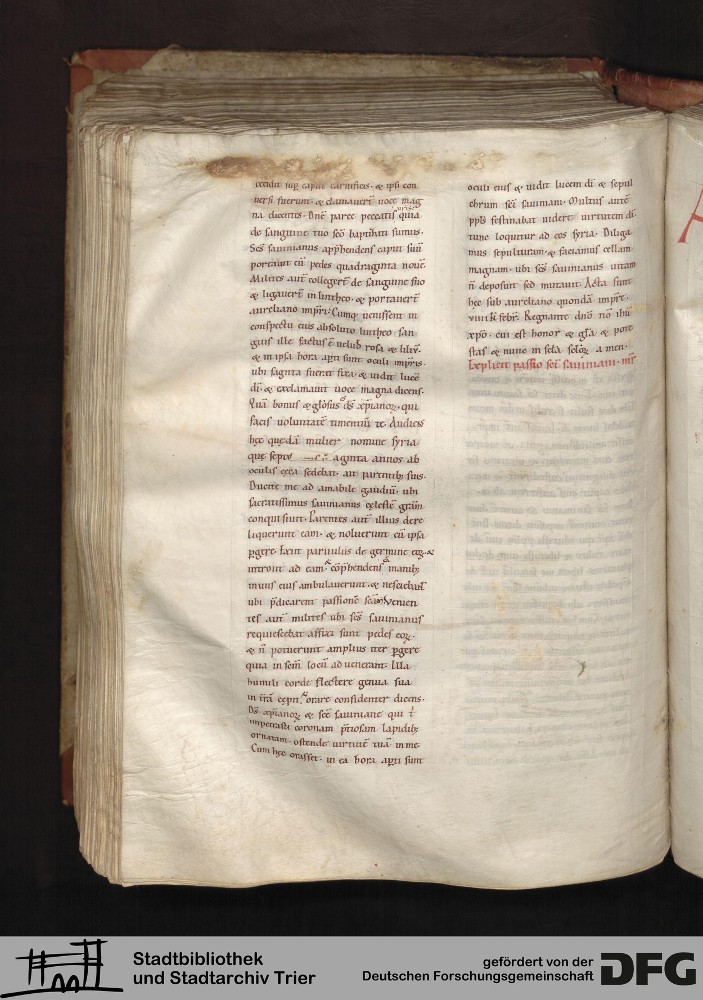 cecidit sup̄ caput carnificis· & ipsi con
uersi fuerunt· & clamauer̄t uoce mag
na dicentes· Dn̄e parce peccatis nr̄is quia
de sanguine tuo sc̄o baptizati sumus·
Sc̄s sauinianus app̄hendens caput suū
portauit cū pedes quadraginta nouē·
Milites aut̄ colleger̄t de sanguine suo
& ligauer̄t in lintheo· & portauer̄t
aureliano impr̄i· Cumq; uenissent in
conspectu eius absoluto lintheo san
guis ille factus ē uelud rosa & liliū·
& in ipsa hora apti sunt oculi impr̄is·
ubi sagitta fuerat fixa· & uidit lucē
dī· & exclamauit uoce magna dicens·
Quā bonus & gl̄osus ds̄ xp̄ianoꝝ· qui
facis uoluntatē timentiū te· Audiens
hęc quędā mulier nomine syria
quę septu aginta annos ab
oculis cęca sedebat· ait parentib; suis·
Ducite me ad amabile gaudiū· ubi
sacratissimus sauinianus cęlestē grām
conquisiuit· Parentes aut̄ illius dere
liquerunt eam· & noluerunt cū ipsa
ꝑgere· Exiit paruulus de germine eoꝝ &
introiit ad eam· & cōp̄hendens manib;
manus eius ambulauerunt· & nesciebat̄
ubi p̄dicarent passionē sc̄am· Venien
tes aut̄ milites ubi sc̄s sauinianus
requiescebat affixi sunt pedes eoꝝ·
& n̄ potuerunt amplius iter ꝑgere
quia in sc̄m locū aduenerant· Illa
humili corde flectere genua sua
in tr̄a cępit· & orare confidenter dicens·
Ds̄ xp̄ianoꝝ & sc̄e sauiniane qui
impetrasti coronam p̄tiosam lapidib;
ornatam· ostende uirtutē tuā in me·
Cum hęc orasset· in ea hora apti sunt
oculi eius & uidit lucem dī & sepul
chrum sc̄i sauiniani· Multus autē
ppl̄s festinabat uidere uirtutem dī·
tunc loquitur ad eos syria· Diliga
mus sepulturam· & faciamus cellam
magnam· ubi sc̄s sauinianus uitam
n̄ deposuit sed mutauit· Acta sunt
hęc sub aureliano quondā impr̄e·
viiii k̄ febr̄· Regnante dn̄o nr̄o ihū
xp̄o· cui est honor & gl̄a & pote
stas & nunc in sc̄la sc̄loꝝ amen·
Explicit passio sc̄i sauiniani· mr̄
Stadtbibliothek
und Stadtarchiv Trier
gefördert von der
Deutschen Forschungsgemeinschaft
DFG